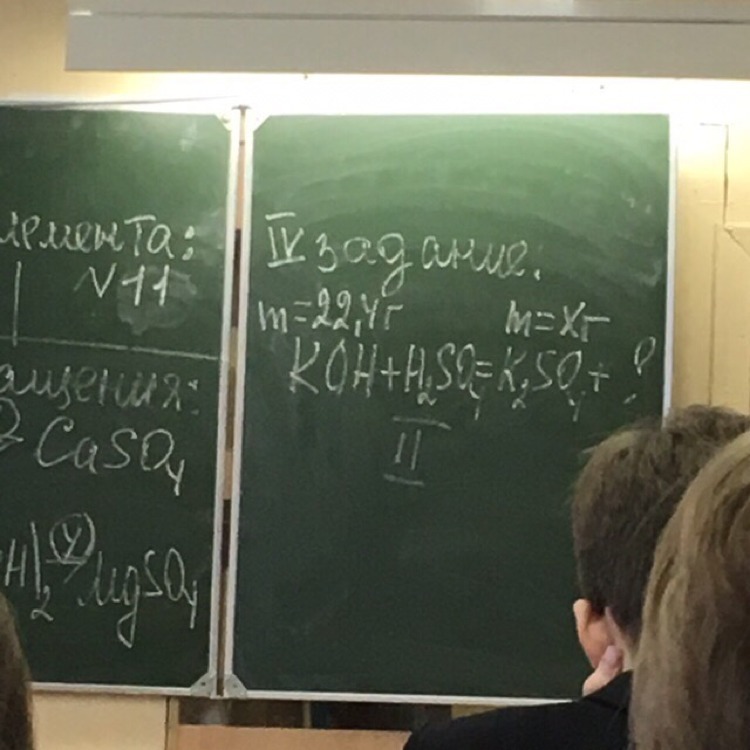 лемента:
N 11
ащения:
CaSO₄
H)₂ ④ MgSO₄
IV задание:
m=22,4г m=Xг
KOH+H₂SO₄=K₂SO₄+ ?
II